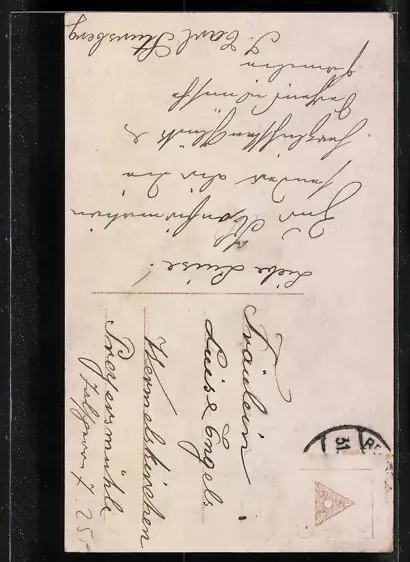 Liebe Luise!
Zur Konfirmation
sendet dir die
herzlichsten Glück- &
Segenswünsche
Familie
J. Carl Stursberg
Fräulein
Luise Engels
Wermelskirchen
Preyersmühle
31